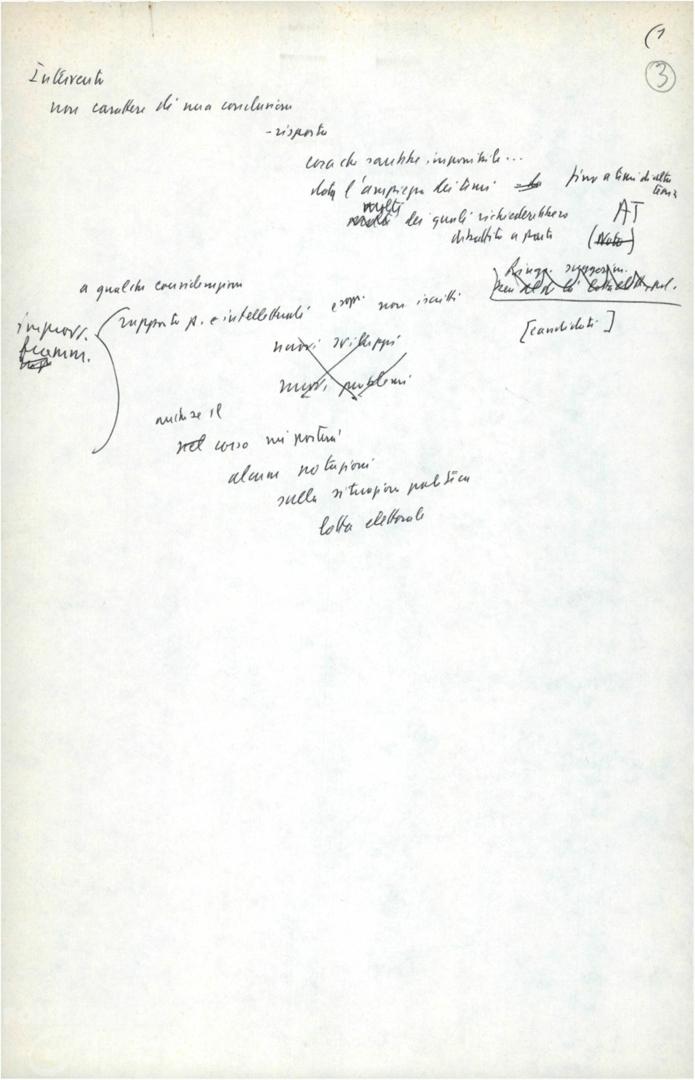 (1
3
Intervento
non carattere di una conclusione
- risposta
cosa che sarebbe impossibile...
data l'ampiezza dei temi
fino a temi di
molti dei quali richiederebbero
AT
dibattito a parte
(Nato)
a qualche considerazione
rapporto p. e intellettuali e non iscritti
[candidati]
improvv.
framm.
nuovi sviluppi
nuovi problemi
anche se il
nel corso mi porterà
alcune notazioni
sulla situazione politica
lotta elettorale